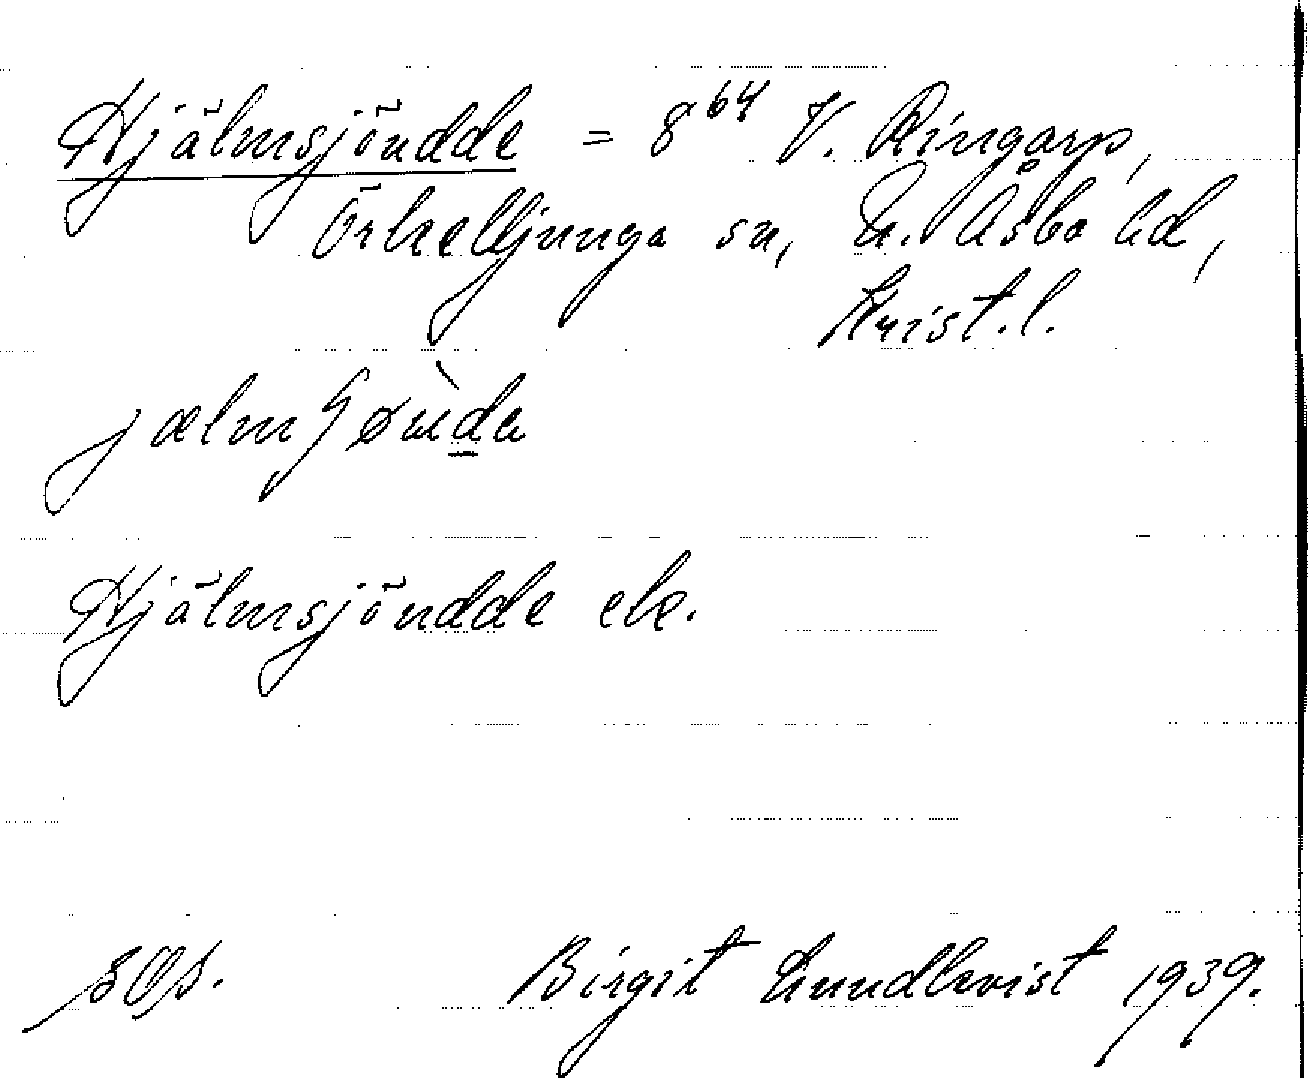 Hjälmsjöndde = 8⁶⁴ V. Ringarp,
Örkelljunga sn, N. Åsbo hd,
Krist. l.
Hjälmsjöndde ek.
Birgit Lundkvist 1939.